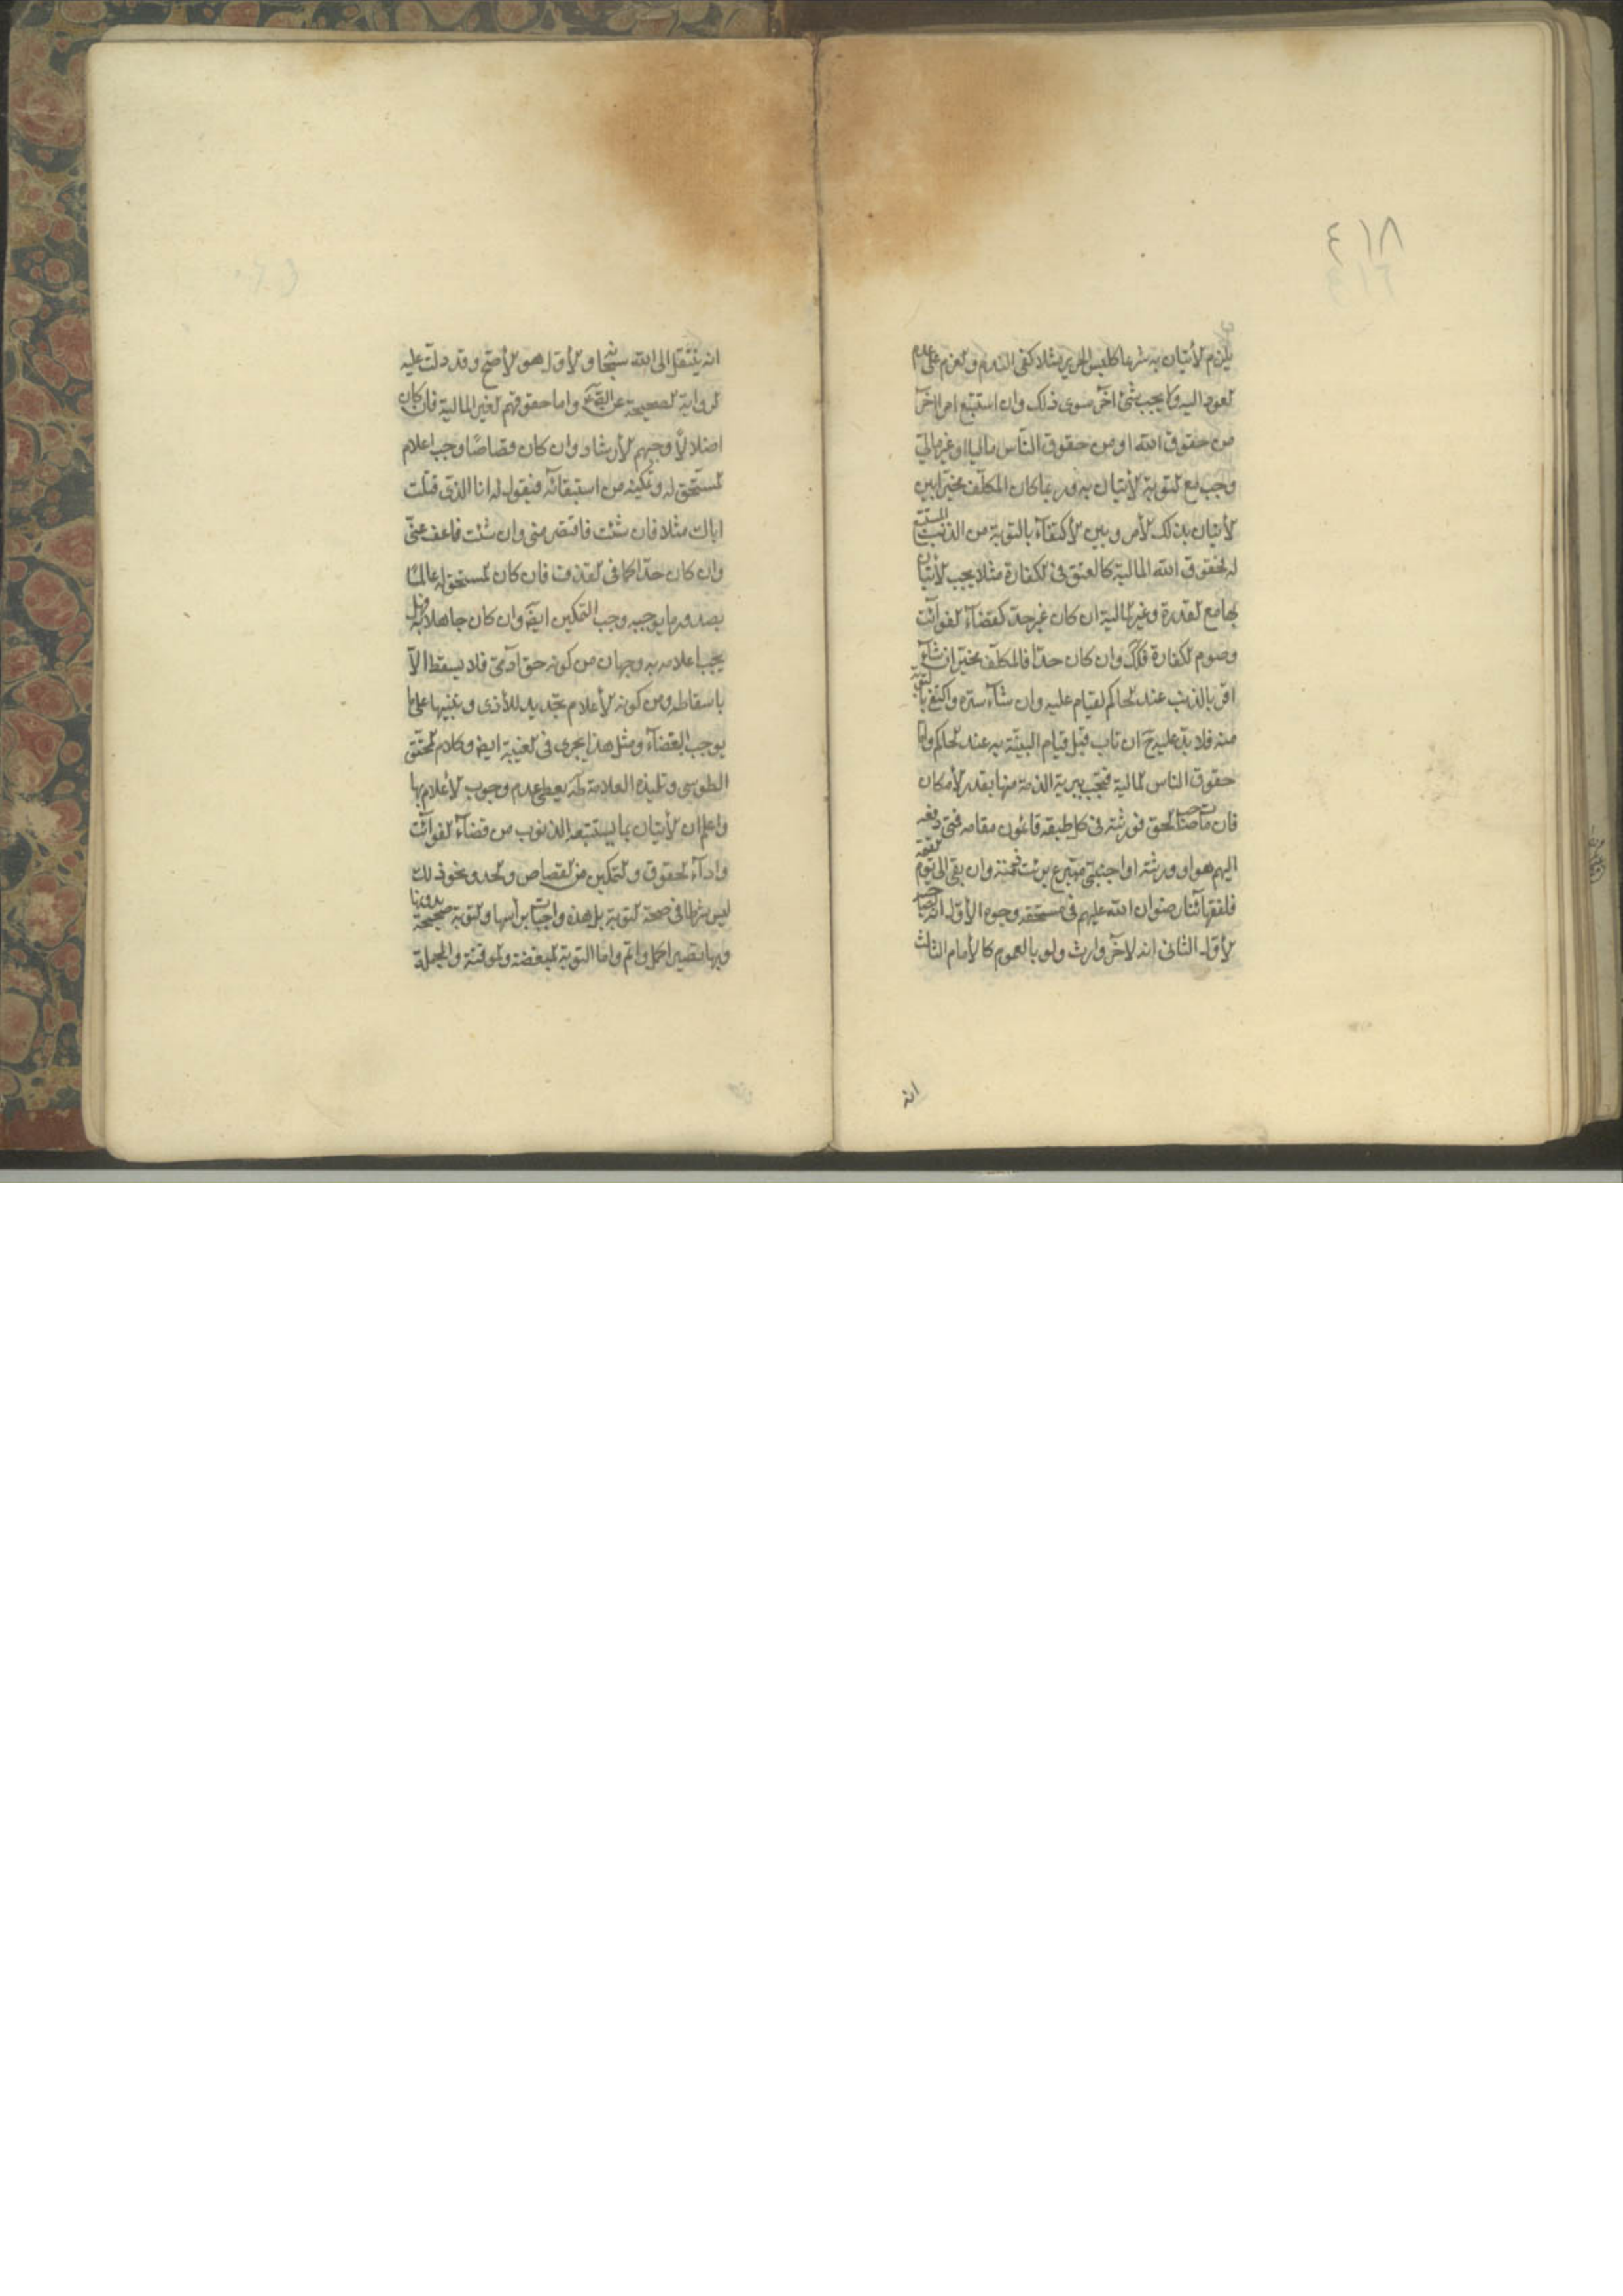 ٤١٨
يلزم الأتيان به شرعا كلبس الحرير مثلا كفى الندم والعزم على عدم
العود اليه ولا يجب شئ آخر سوى ذلك وان استتبع امرا آخر
من حقوق الله او من حقوق الناس ماليا او غير مالي
وجب مع التوبة الأتيان به وربما كان المكلف مخيرا بين
الأتيان بذلك الأمر وبين الأكتفاء بالتوبة من الذنب المستتبع
له فحقوق الله المالية كالعتق في الكفارة مثلا يجب الأتيان
بها مع القدرة وغير المالية ان كان غير حد كقضاء الفوائت
وصوم الكفارة فكك وان كان حدا فالمكلف مخير ان شاء
اقر بالذنب عند الحاكم ليقام عليه وان شاء ستره واكتفى بالتوبة
منه فلا حد عليه ح ان تاب قبل قيام البينة به عند الحاكم واما
حقوق الناس المالية فتجب تبرية الذمة منها بقدر الأمكان
فان مات صاحب الحق فورثته في كل طبقة قائمون مقامه فمتى دفعه
اليهم هو او ورثته او اجنبي متبرع برئت ذمته وان بقى الى يوم القيمة
فلفقهائنا رضوان الله عليهم في مستحقه وجوه الأول انه لصاحبه
الأول الثاني انه لآخر وارث ولو بالعموم كالأمام الثالث
انه
انه ينتقل الى الله سبحانه والأول هو الأصح وقد دلت عليه
الرواية الصحيحة عن الصم ع واما حقوقهم الغير المالية فان كان
اضلالا وجبهم الأرشاد وان كان قصاصا وجب اعلام
المستحق له وتمكينه من استيفائه فيقول له انا الذي قتلت
اباك مثلا فان شئت فاقتص مني وان شئت فاعف عني
وان كان حدا كما في القذف فان كان المستحق له عالما
بصدور ما يوجبه وجب التمكين ايضا وان كان جاهلا به فهل
يجب اعلامه به وجهان من كونه حق آدمي فلا يسقط الا
باسقاطه ومن كون الأعلام تجديدا للأذى وتنبيها على ما
يوجب البغضاء ومثل هذا يجري في الغيبة ايضا وكلام المحقق
الطوسي وتلميذه العلامة طه يعطي عدم وجوب الأعلام بها
واعلم ان الأتيان بما يستتبعه الذنوب من قضاء الفوائت
واداء الحقوق والتمكين من القصاص والحد ونحو ذلك
ليس شرطا في صحة التوبة بل هذه واجبات برأسها والتوبة صحيحة بدونها
وبها تصير اكمل واتم واما التوبة المبعضة والموقتة والمجملة